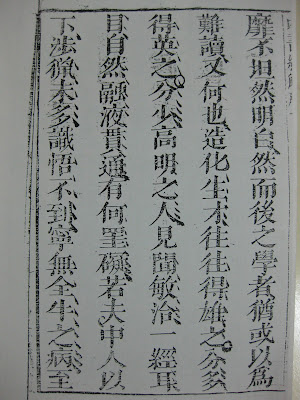 靡不坦然明白然而後之學者猶或以為
難讀又何也造化生才往往得雄之分多
得英之分少高明之人見聞敏洽一經耳
目自然融液貫通有何罣礙若夫中人以
下涉獵未多識悟不到寧無全牛之病至